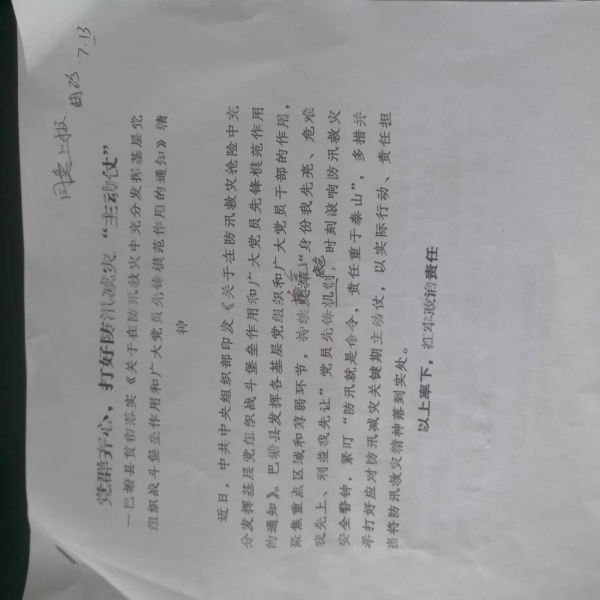 同意上报
7.13
党群齐心，打好防汛减灾“主动仗”
—巴塘县贯彻落实《关于在防汛救灾中充分发挥基层党
组织战斗堡垒作用和广大党员先锋模范作用的通知》精
神
近日，中共中央组织部印发《关于在防汛救灾抢险中充
分发挥基层党组织战斗堡垒作用和广大党员先锋模范作用
的通知》。巴塘县发挥各基层党组织和广大党员干部的作用，
聚焦重点区域和薄弱环节，持续“身份我先亮、危难
我先上、利益我先让”党员先锋机制，时刻敲响防汛救灾
安全警钟，紧盯“防汛就是命令，责任重于泰山”，多措并
举打好应对防汛减灾关键期主动仗，以实际行动、责任担
当将防汛救灾精神落到实处。
以上率下，扛牢政治责任